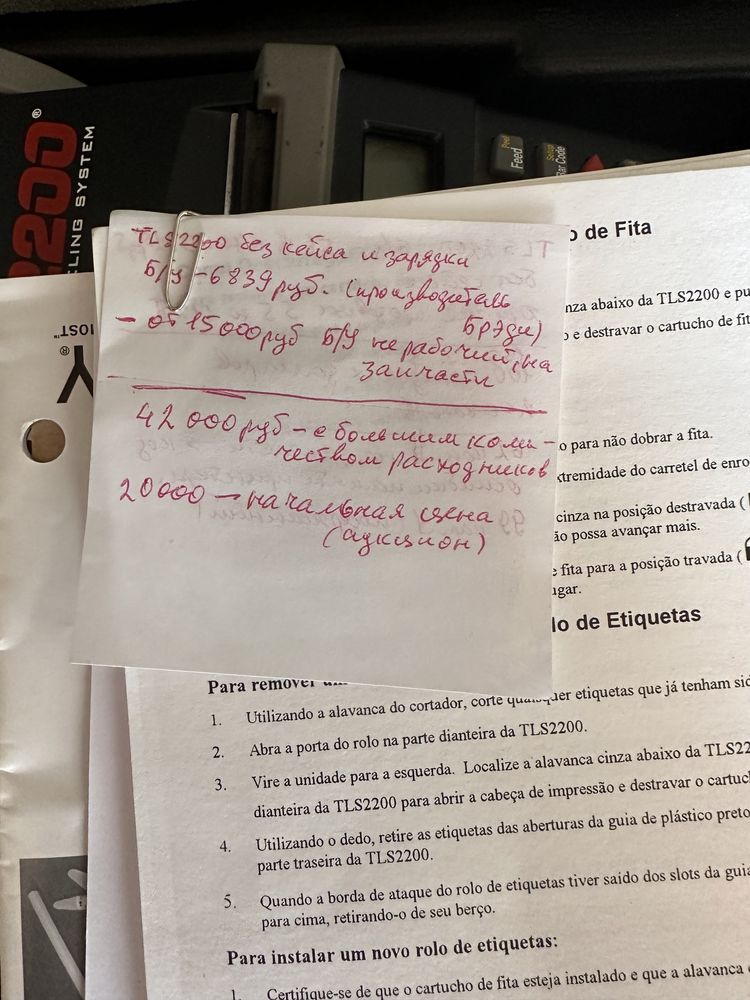 200®
LING SYSTEM
Peel
Feed
Setup
Bar Code
TLS2200 без кейса и зарядки
Б/у - 6839 руб. (производитель
Брэди)
- от 15000 руб Б/У не рабочий, на
запчасти
42 000 руб - с большим коли -
чеством расходников
20000 - начальная цена
(аукцион)
®
Y
o de Fita
nza abaixo da TLS2200 e pu
o e destravar o cartucho de fit
o para não dobrar a fita.
xtremidade do carretel de enro
cinza na posição destravada (
ão possa avançar mais.
e fita para a posição travada (
ugar.
lo de Etiquetas
Para remover
1. Utilizando a alavanca do cortador, corte quaisquer etiquetas que já tenham sid
2. Abra a porta do rolo na parte dianteira da TLS2200.
3. Vire a unidade para a esquerda. Localize a alavanca cinza abaixo da TLS22
dianteira da TLS2200 para abrir a cabeça de impressão e destravar o cartuc
4. Utilizando o dedo, retire as etiquetas das aberturas da guia de plástico preto
parte traseira da TLS2200.
5. Quando a borda de ataque do rolo de etiquetas tiver saído dos slots da guia
para cima, retirando-o de seu berço.
Para instalar um novo rolo de etiquetas:
1. Certifique-se de que o cartucho de fita esteja instalado e que a alavanca